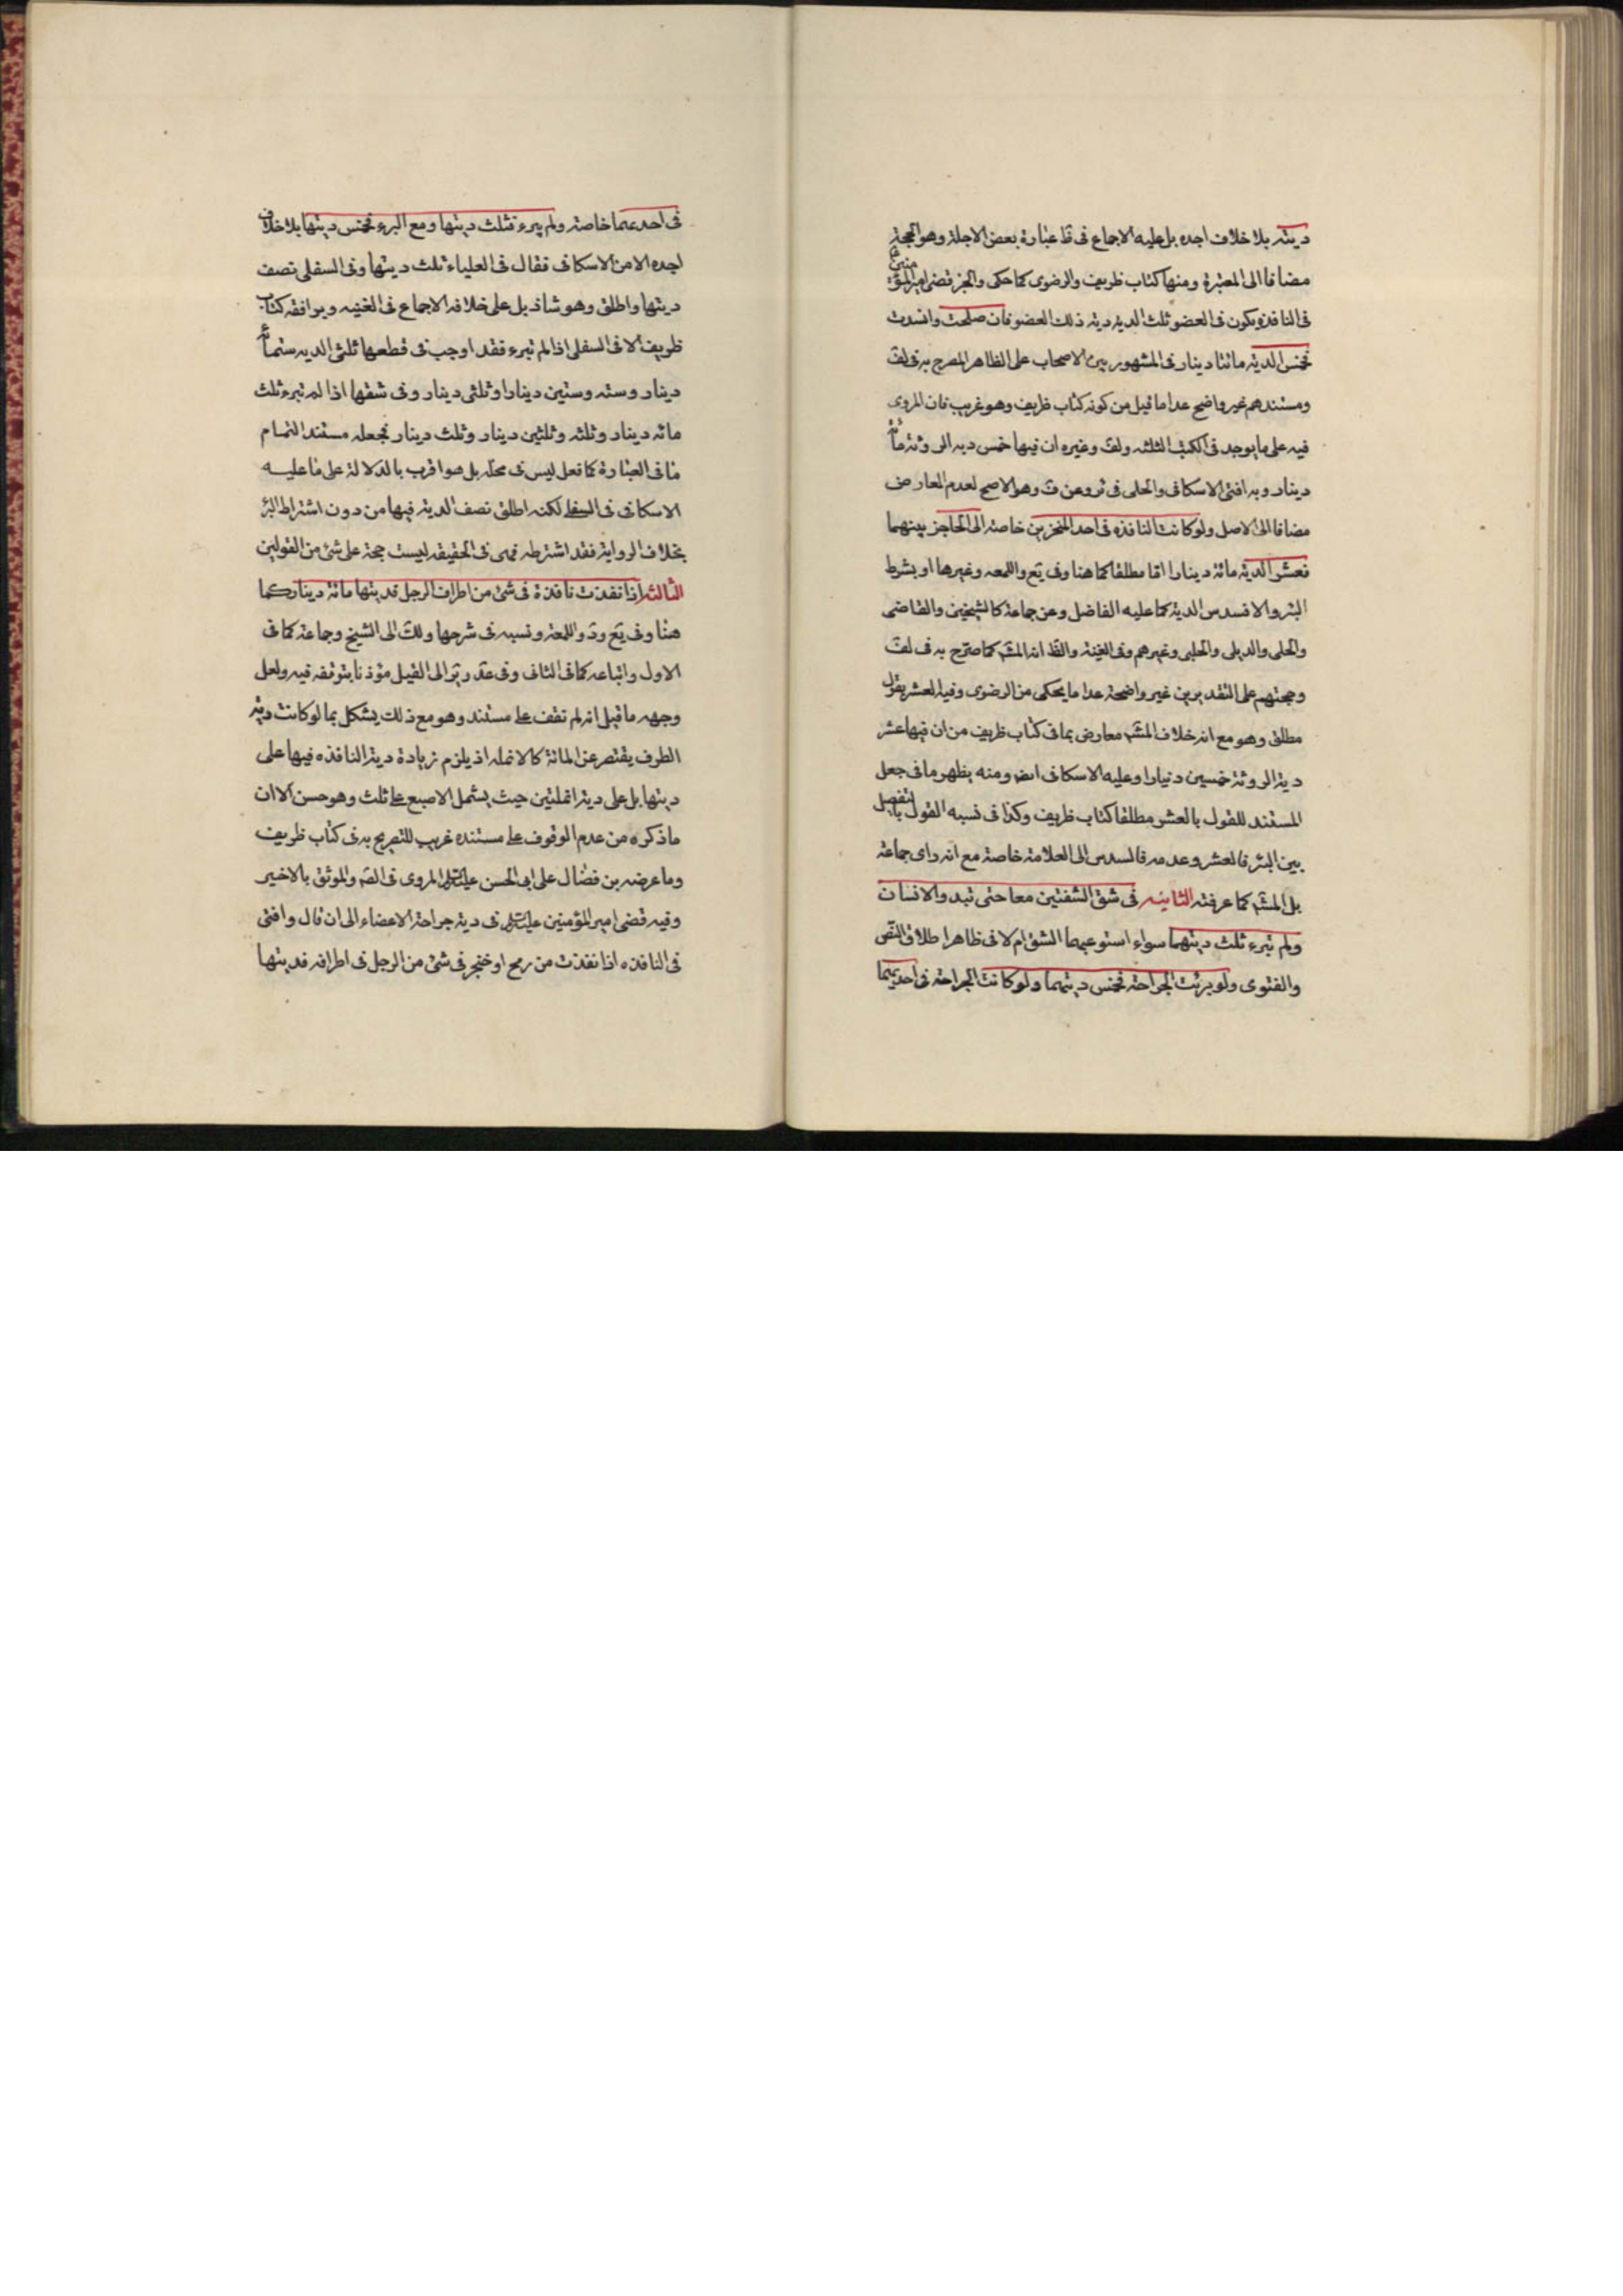 ديته بلا خلاف اجده بل عليه الاجماع فى ظ عبارة بعض الاجلة وهو الحجة
مضافا الى المعتبرة ومنها كتاب ظريف والرضوى كما حكى والخبر قضى امير المؤمنين ع
فى النافذة يكون فى العضو ثلث الدية دية ذلك العضو فان صلحت وانسدت
فخمس الدية مائتا دينار فى المشهور بين الاصحاب على الظاهر المصرح به فى لف
ومستندهم غير واضح عدا ما قيل من كونه كتاب ظريف وهو غريب فان المروى
فيه على ما يوجد فى الكتب الثلثه ولف وغيره ان فيها خمس ديه الروثة مائة
دينار وبه افتى الاسكافى والحلى فى ئر وعن ف وهو الاصح لعدم المعارض
مضافا الى الاصل ولو كانت النافذه فى احد المنخرين خاصة الى الحاجز بينهما
فعشر الدية مائة دينار اما مطلقا كما هنا وفى يع واللمعه وغيرها او بشرط
البئر والا فسدس الدية كما عليه الفاضل وعن جماعة كالشيخين والقاضى
والحلى والديلى والحلبى وغيرهم وفى الغنية والظ انه المشه كما صرح به فى لف
وحجتهم على التقديرين غير واضحة عدا ما يحكى من الرضوى وفيه العشر بقول
مطلق وهو مع انه خلاف المشه معارض بما فى كتاب ظريف من ان فيها عشر
دية الروثة خمسين دينارا وعليه الاسكافى ايض ومنه يظهر ما فى جعل
المستند للقول بالعشر مطلقا كتاب ظريف وكذا فى نسبه القول بالتفصيل
بين البئر فالعشر وعدمه فالسدس الى العلامة خاصة مع انه راى جماعة
بل المشه كما عرفته الثانيه فى شق الشفتين معا حتى تبدو الاسنان
ولم تبرء ثلث ديتهما سواء استوعبهما الشق ام لا فى ظاهر اطلاق النص
والفتوى ولو برئت الجراحة فخمس ديتهما ولو كانت الجراحة فى احديهما
فى احديهما خاصة ولم يبرء فثلث ديتها ومع البرء فخمس ديتها بلا خلاف
اجده الا من الاسكافى فقال فى العلياء ثلث ديتها وفى السفلى نصف
ديتها واطلق وهو شاذ بل على خلافه الاجماع فى الغنيه ويوافقه كتاب
ظريف الا فى السفلى اذا لم تبرء فقد اوجب فى قطعها ثلثى الديه ستمائة
دينار وسته وستين دينارا وثلثى دينار وفى شقها اذا لم تبرء ثلث
مائه دينار وثلثه وثلثين دينار وثلث دينار فجعله مستند التمام
ما فى العبارة كما فعل ليس فى محله بل هو اقرب بالدلالة على ما عليه
الاسكافى فى السفلى لكنه اطلق نصف الدية فيها من دون اشتراط البرء
بخلاف الرواية فقد اشترطه فهى فى الحقيقه ليست حجة على شئ من القولين
الثالثه اذا نفذت نافذة فى شئ من اطراف الرجل فديتها مائة دينار كما
هنا وفى يع ود واللمعة ونسبه فى شرحها ولك الى الشيخ وجماعة كما فى
الاول واتباعه كما فى الثانى وفى عد ير الى القيل مؤذنا بتوقفه فيه ولعل
وجهه ما قيل انه لم نقف على مستند وهو مع ذلك يشكل بما لو كانت دية
الطرف يقتصر عن المائة كالانمله اذ يلزم زيادة دية النافذه فيها على
ديتها بل على دية انملتين حيث يشمل الاصبع على ثلث وهو حسن الا ان
ما ذكره من عدم الوقوف على مستنده غريب للتصريح به فى كتاب ظريف
وما عرضه بن فضال على ابى الحسن عليه السلام المروى فى الصه والموثق بالاخير
وفيه قضى امير المؤمنين عليه السلام فى دية جراحة الاعضاء الى ان قال وافتى
فى النافذه اذا نفذت من رمح او خنجر فى شئ من الرجل فى اطرافه فديتها